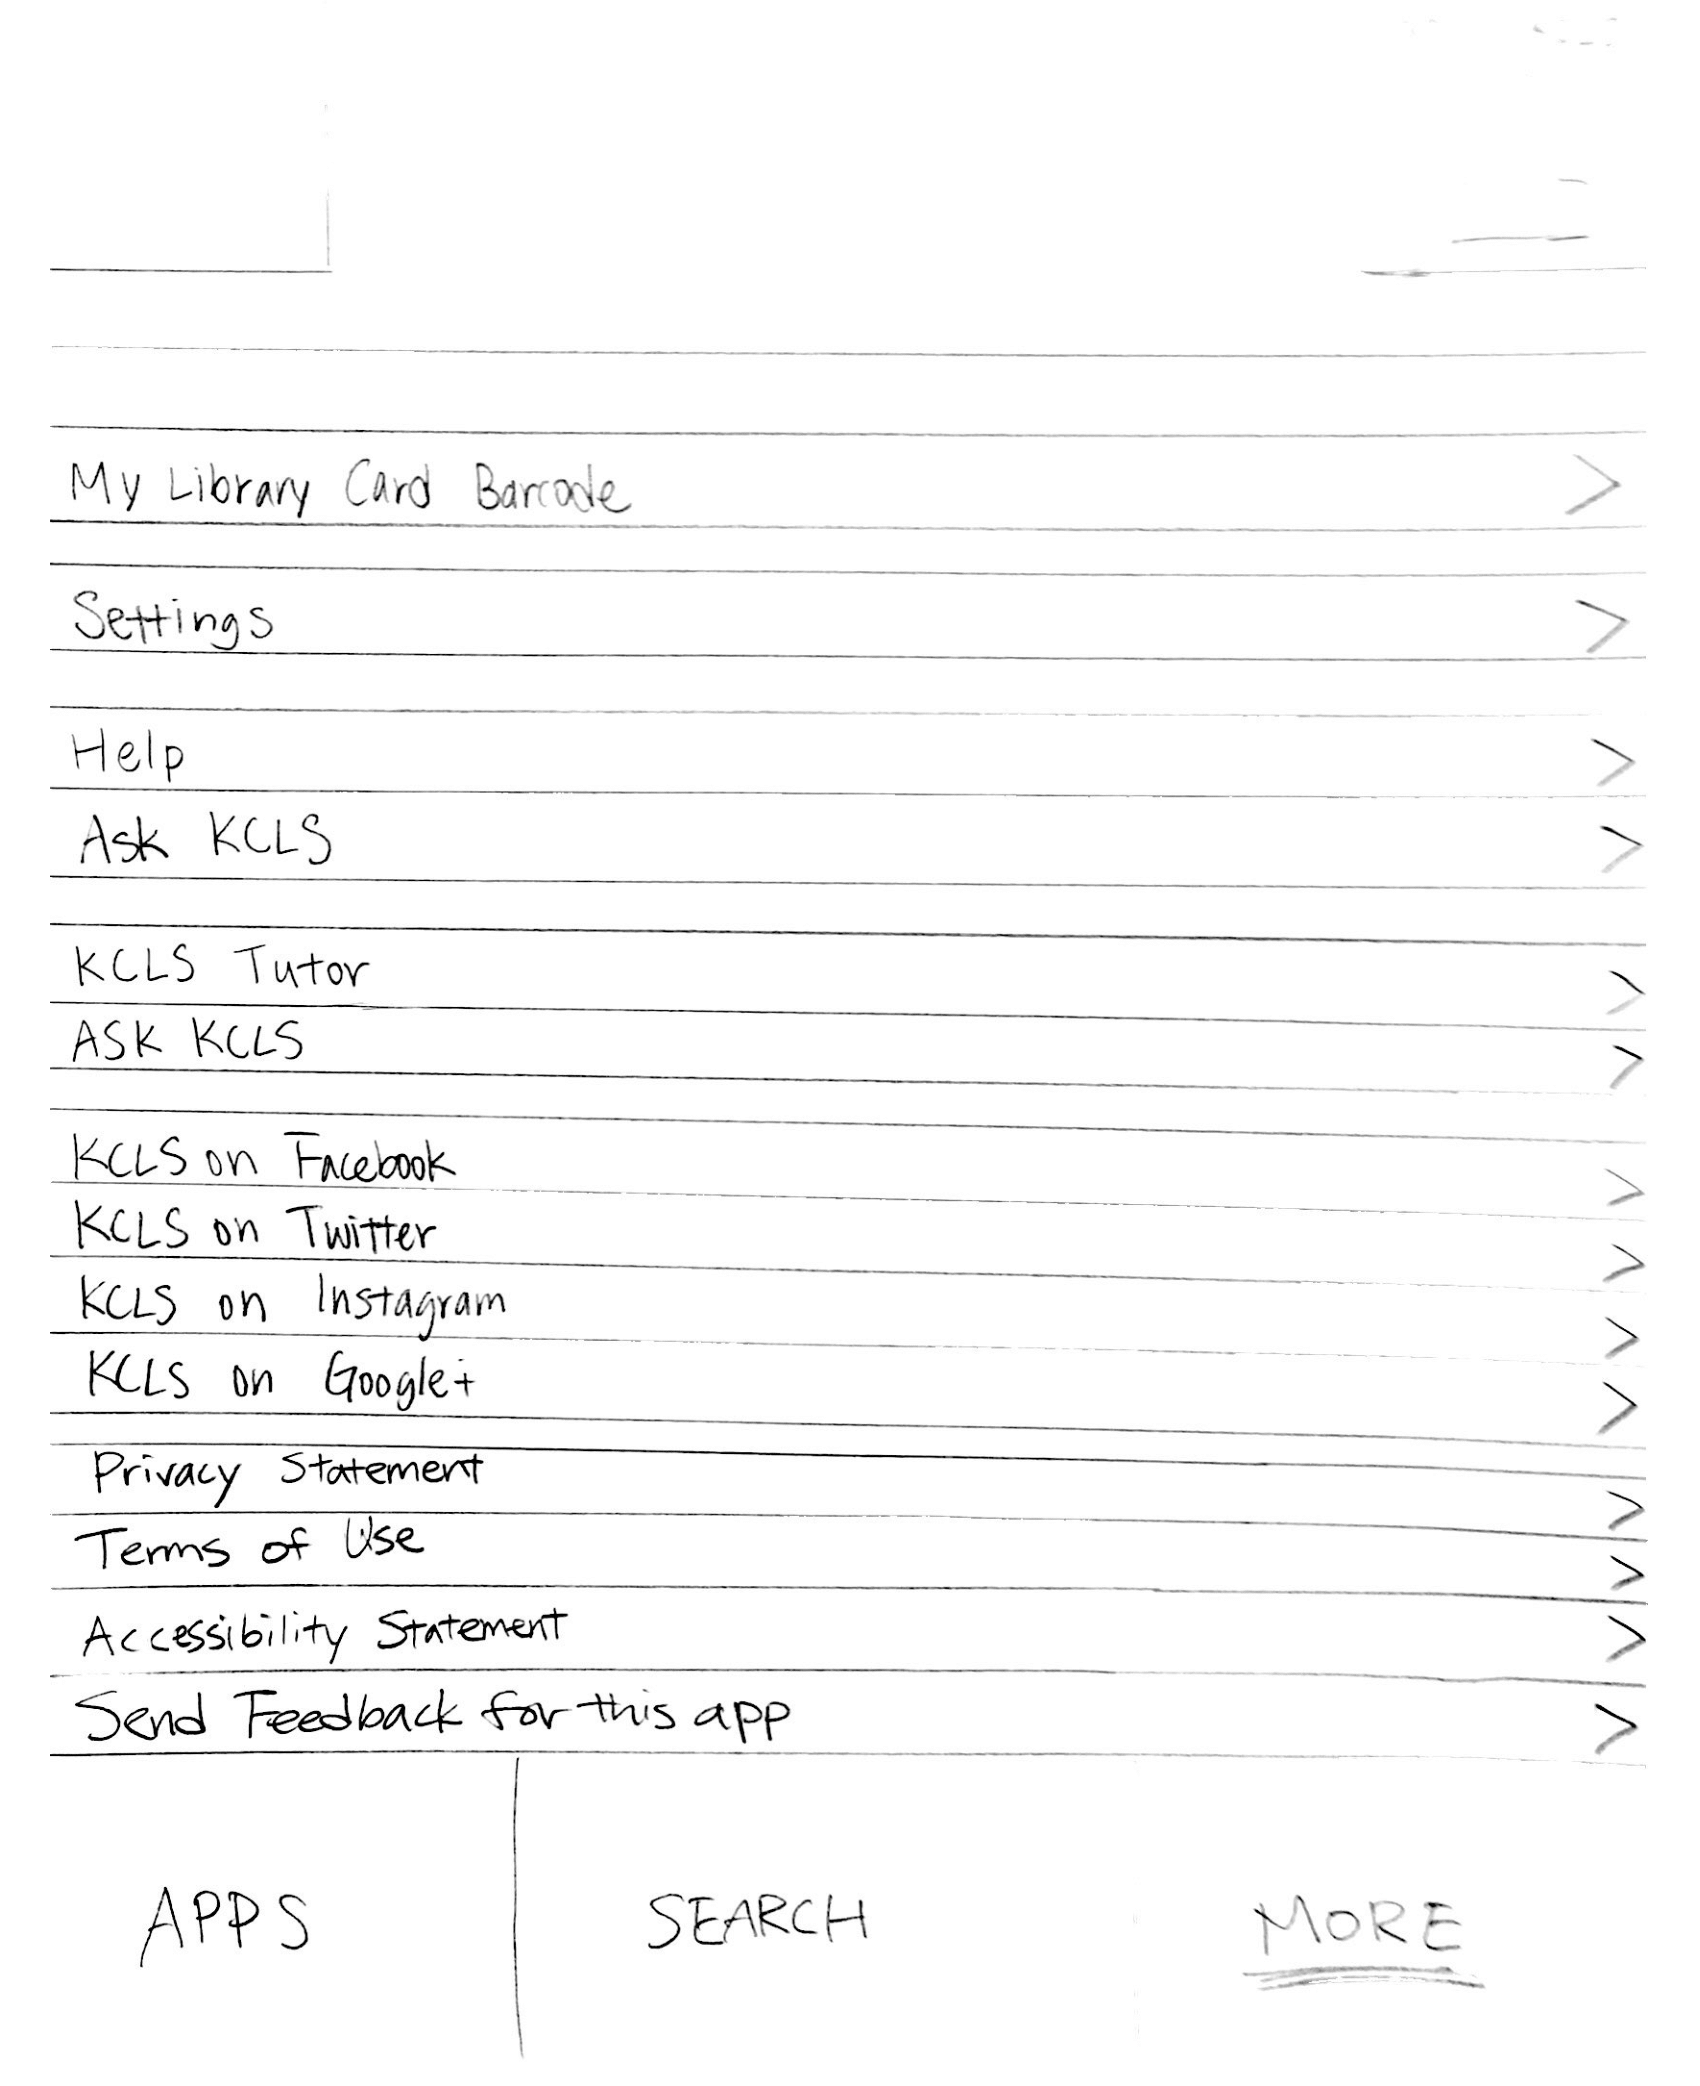 My Library Card Barcode >
Settings >
Help >
Ask KCLS >
KCLS Tutor >
ASK KCLS >
KCLS on Facebook >
KCLS on Twitter >
KCLS on Instagram >
KCLS on Google+ >
Privacy Statement >
Terms of Use >
Accessibility Statement >
Send Feedback for this app >
APPS SEARCH MORE